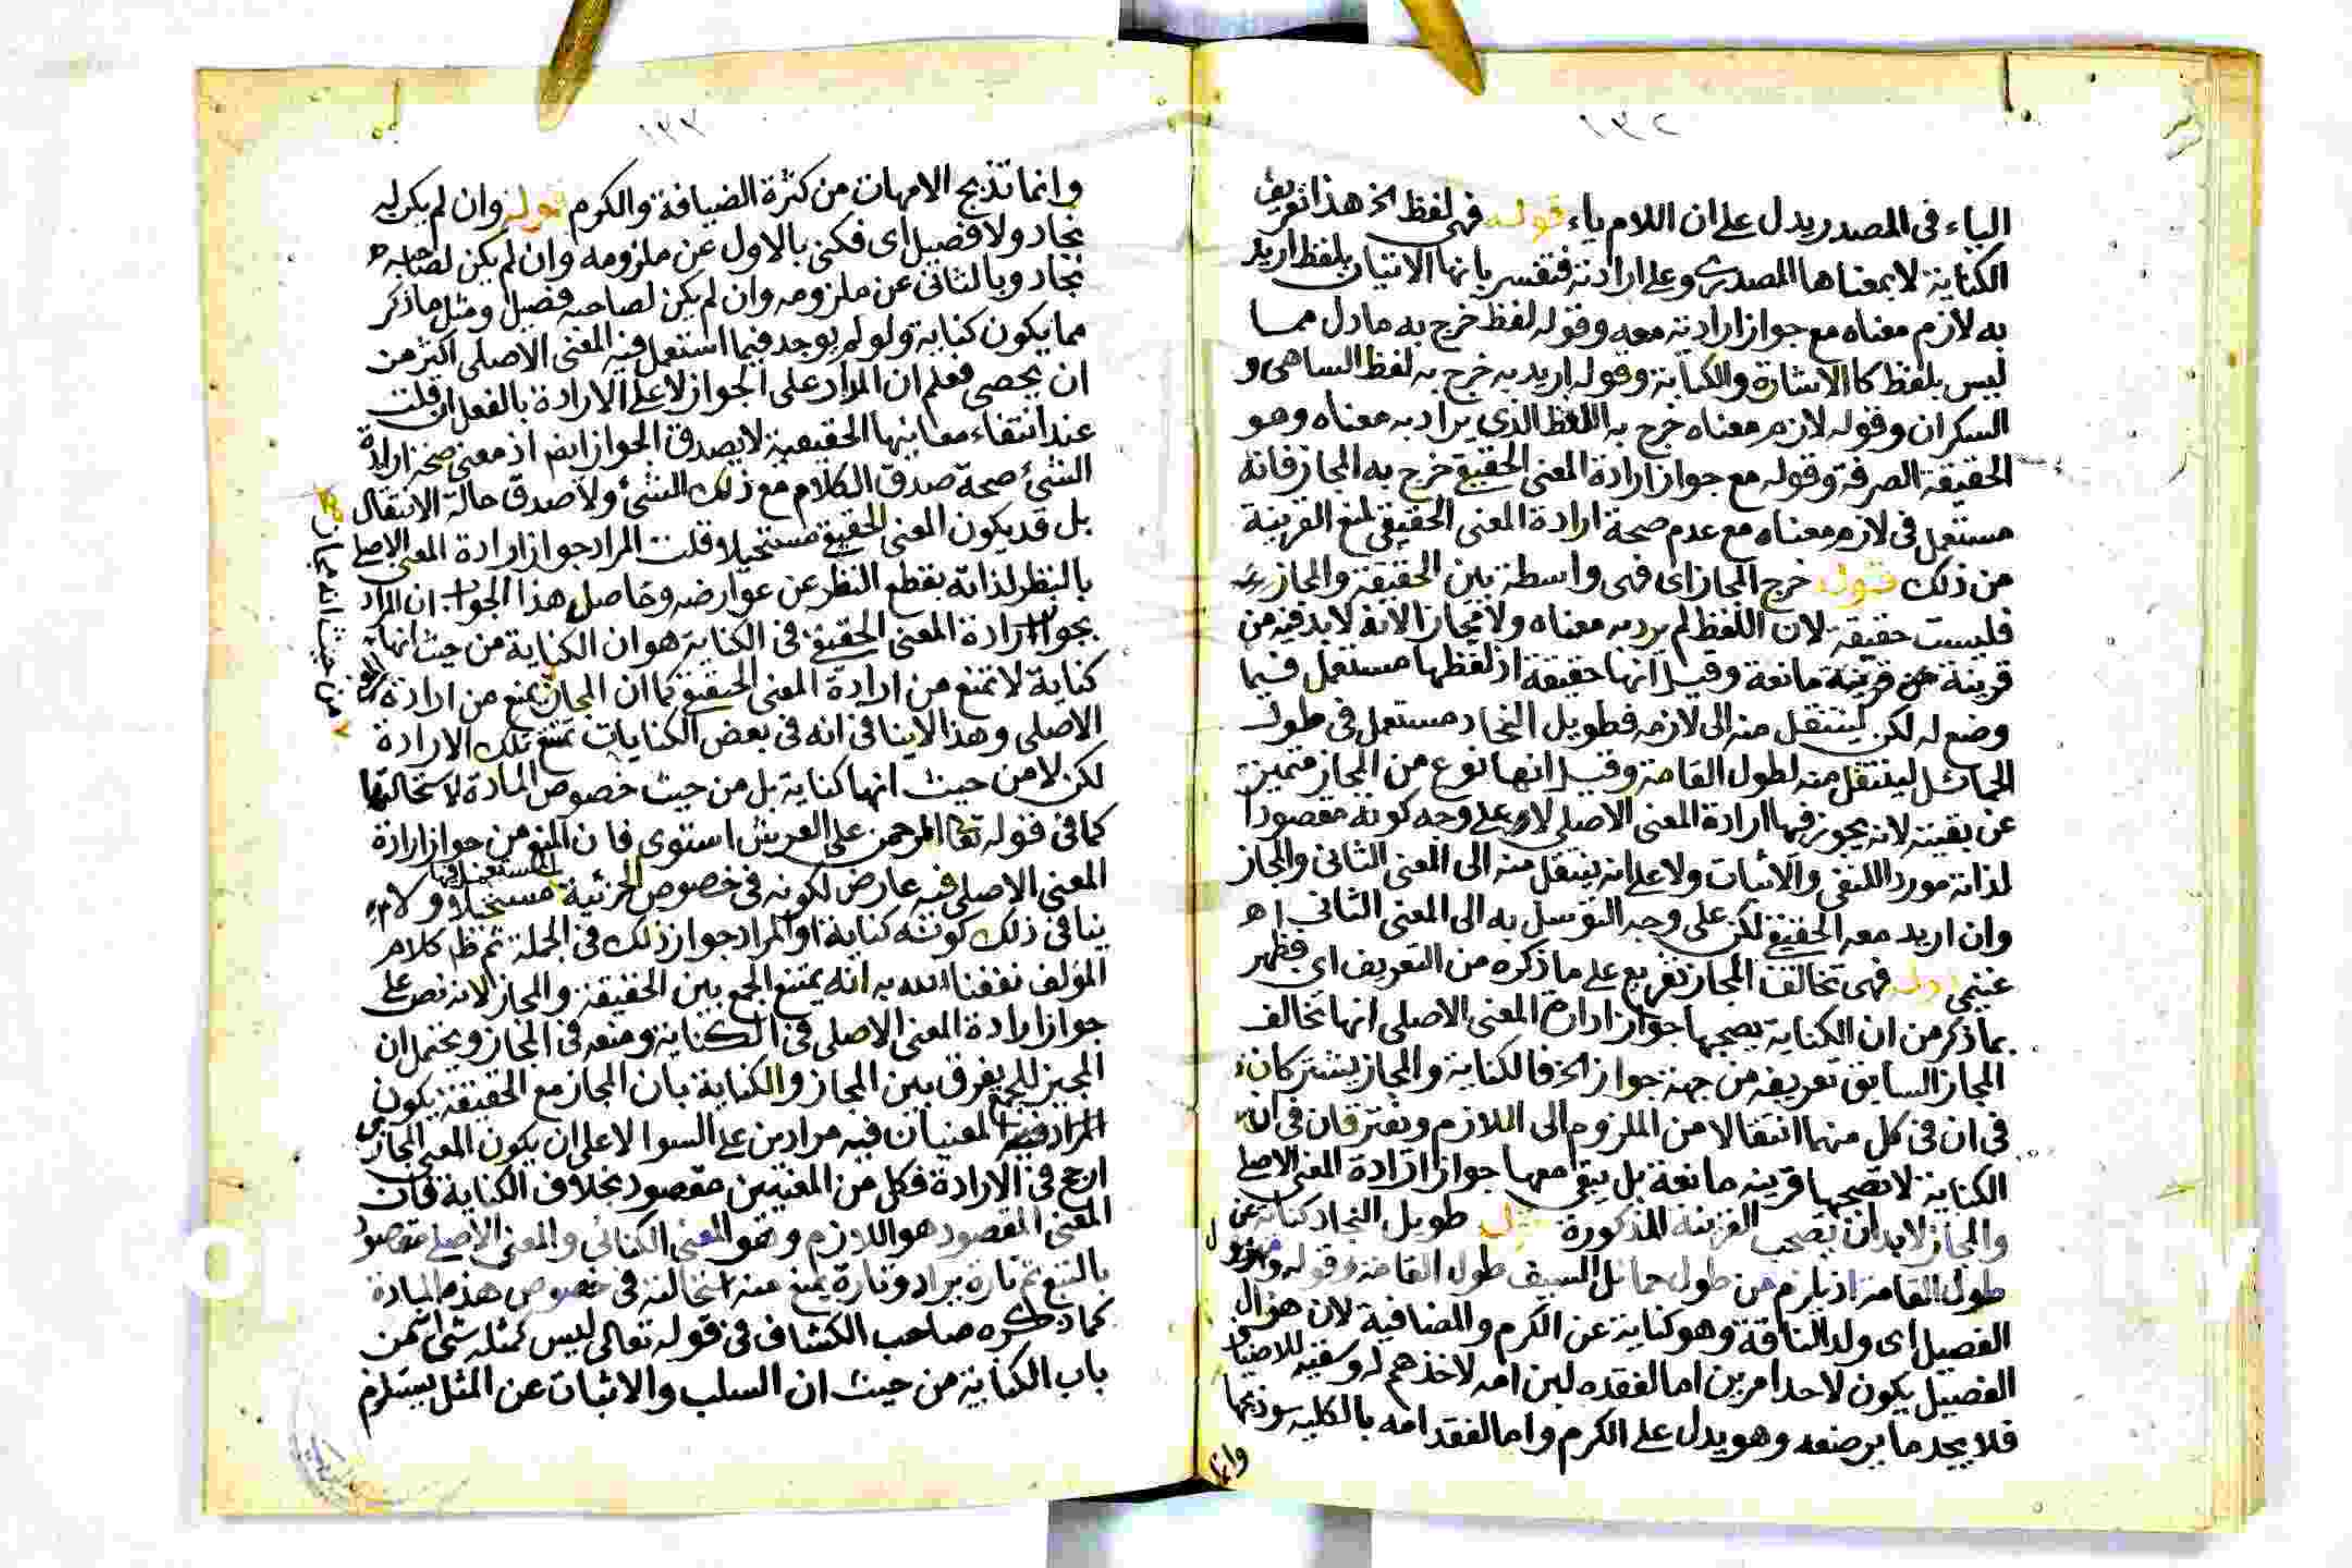 ١٣٢
الياء فى المصدر يدل على ان اللام ياء قوله فهى لفظ الخ هذا تعريف
الكناية لا بمعناها المصدرى وعلى ارادته فتفسر بانها الاتيان بلفظ اريد
به لازم معناه مع جواز ارادته معه وقوله لفظ خرج به ما دل مما
ليس بلفظ كالاشارة والكتابة وقوله اريد به خرج به لفظ الساهى و
السكران وقوله لازم معناه خرج به اللفظ الذى يراد به معناه وهو
الحقيقة الصرفة وقوله مع جواز ارادة المعنى الحقيقى خرج به المجاز فانه
مستعمل فى لازم معناه مع عدم صحة ارادة المعنى الحقيقى لمنع القرينة
من ذلك قوله خرج المجاز اى فهى واسطة بين الحقيقة والمجاز
فليست حقيقة لان اللفظ لم يرد به معناه ولا مجاز الانه لا بد فيه من
قرينة من قرينة مانعة وقيل انها حقيقة اذ لفظها مستعمل فيما
وضع له لكن لينتقل منه الى لازمه فطويل النجاد مستعمل فى طول
الحمائل لينتقل منه لطول القامة وقيل انها نوع من المجاز متميز
عن بقيته لانه يجوز فيها ارادة المعنى الاصلى لا على وجه كونه مقصودا
لذاته مورد اللنفى والاثبات ولا على انه ينتقل منه الى المعنى الثانى والمجاز
وان اريد معه الحقيقى لكن على وجه التوسل به الى المعنى الثانى اه
غنيمى قوله فهى تخالف المجاز تفريع على ما ذكره من التعريف اى فظهر
بما ذكر من ان الكناية يصحبها جواز ارادة المعنى الاصلى انها تخالف
المجاز السابق تعريفه من جهة جواز الخ فالكناية والمجاز يشتركان
فى ان فى كل منهما انتقالا من الملزوم الى اللازم ويفترقان فى ان
الكناية لا تصحبها قرينه مانعة بل يبقى معها جواز ارادة المعنى الاصلى
والمجاز لا بد ان تصحب القرينة المذكورة قوله طويل النجاد كناية عن
طول القامة اذ يلزم من طول حمائل السيف طول القامة وقوله ومهزول
الفصيل اى ولد الناقة وهو كناية عن الكرم والمضافية لان هزال
الفصيل يكون لاحد امرين اما لفقده لبن امه لاخذهم له وسقيه للاضياف
فلا يجد ما يرضعه وهو يدل على الكرم واما لفقد امه بالكلية بذبحها
وانما
١٣٣
وانما تذبح الامهات من كثرة الضيافة والكرم قوله وان لم يكن له
نجاد ولا فصيل اى فكنى بالاول عن ملزومه وان لم يكن لصاحبه
نجاد وبالثانى عن ملزومه وان لم يكن لصاحبه فصيل ومثل ما ذكر
مما يكون كناية ولو لم يوجد فيما استعمل فيه المعنى الاصلى اكثر من
ان يحصى فعلم ان المراد على الجواز لا على الارادة بالفعل ان قلت
عند انتفاء معانيها الحقيقية لا يصدق الجواز ايضا اذ معنى صحة ارادة
الشئ صحة صدق الكلام مع ذلك الشئ ولا صدق حالة الانتقال
بل قد يكون المعنى الحقيقى مستحيلا قلت المراد جواز ارادة المعنى الاصلى
بالنظر لذاته بقطع النظر عن عوارضه وحاصل هذا الجواب ان المراد
بجواز ارادة المعنى الحقيقى فى الكناية هو ان الكناية من حيث انها
كناية لا تمنع من ارادة المعنى الحقيقى كما ان المجاز يمنع من ارادة
من حيث انه مجاز
الاصلى وهذا لا ينافى انه فى بعض الكنايات تمتنع تلك الارادة
لكن لا من حيث انها كناية بل من حيث خصوص المادة لاستحالتها
كما فى قوله تعا الرحمن على العرش استوى فان المنع من جواز ارادة
المعنى الاصلى فيه عارض لكونه فى خصوص الجزئية المستعمل فيها مستحيلا ولا
ينافى ذلك كونه كناية او المراد جواز ذلك فى الجملة ثم ظ كلام
المؤلف نفعنا الله به انه يمتنع الجمع بين الحقيقة والمجاز لانه نص على
جواز ارادة المعنى الاصلى فى الكناية ومنعه فى المجاز ويحتمل ان
المجيز للجمع يفرق بين المجاز والكناية بان المجاز مع الحقيقة يكون
المعنيان فيه مرادين على السوا لا على ان يكون المعنى المجازى
ارجح فى الارادة فكل من المعنيين مقصود بخلاف الكناية فان
المعنى المقصود هو اللازم وهو المعنى الكنائى والمعنى الاصلى مقصود
بالتبع ثم تارة يراد وتارة يمنع منه استحالته فى خصوص هذه المادة
كما ذكره صاحب الكشاف فى قوله تعالى ليس كمثله شئ انه من
باب الكناية من حيث ان السلب والاثبات عن المثل يستلزم